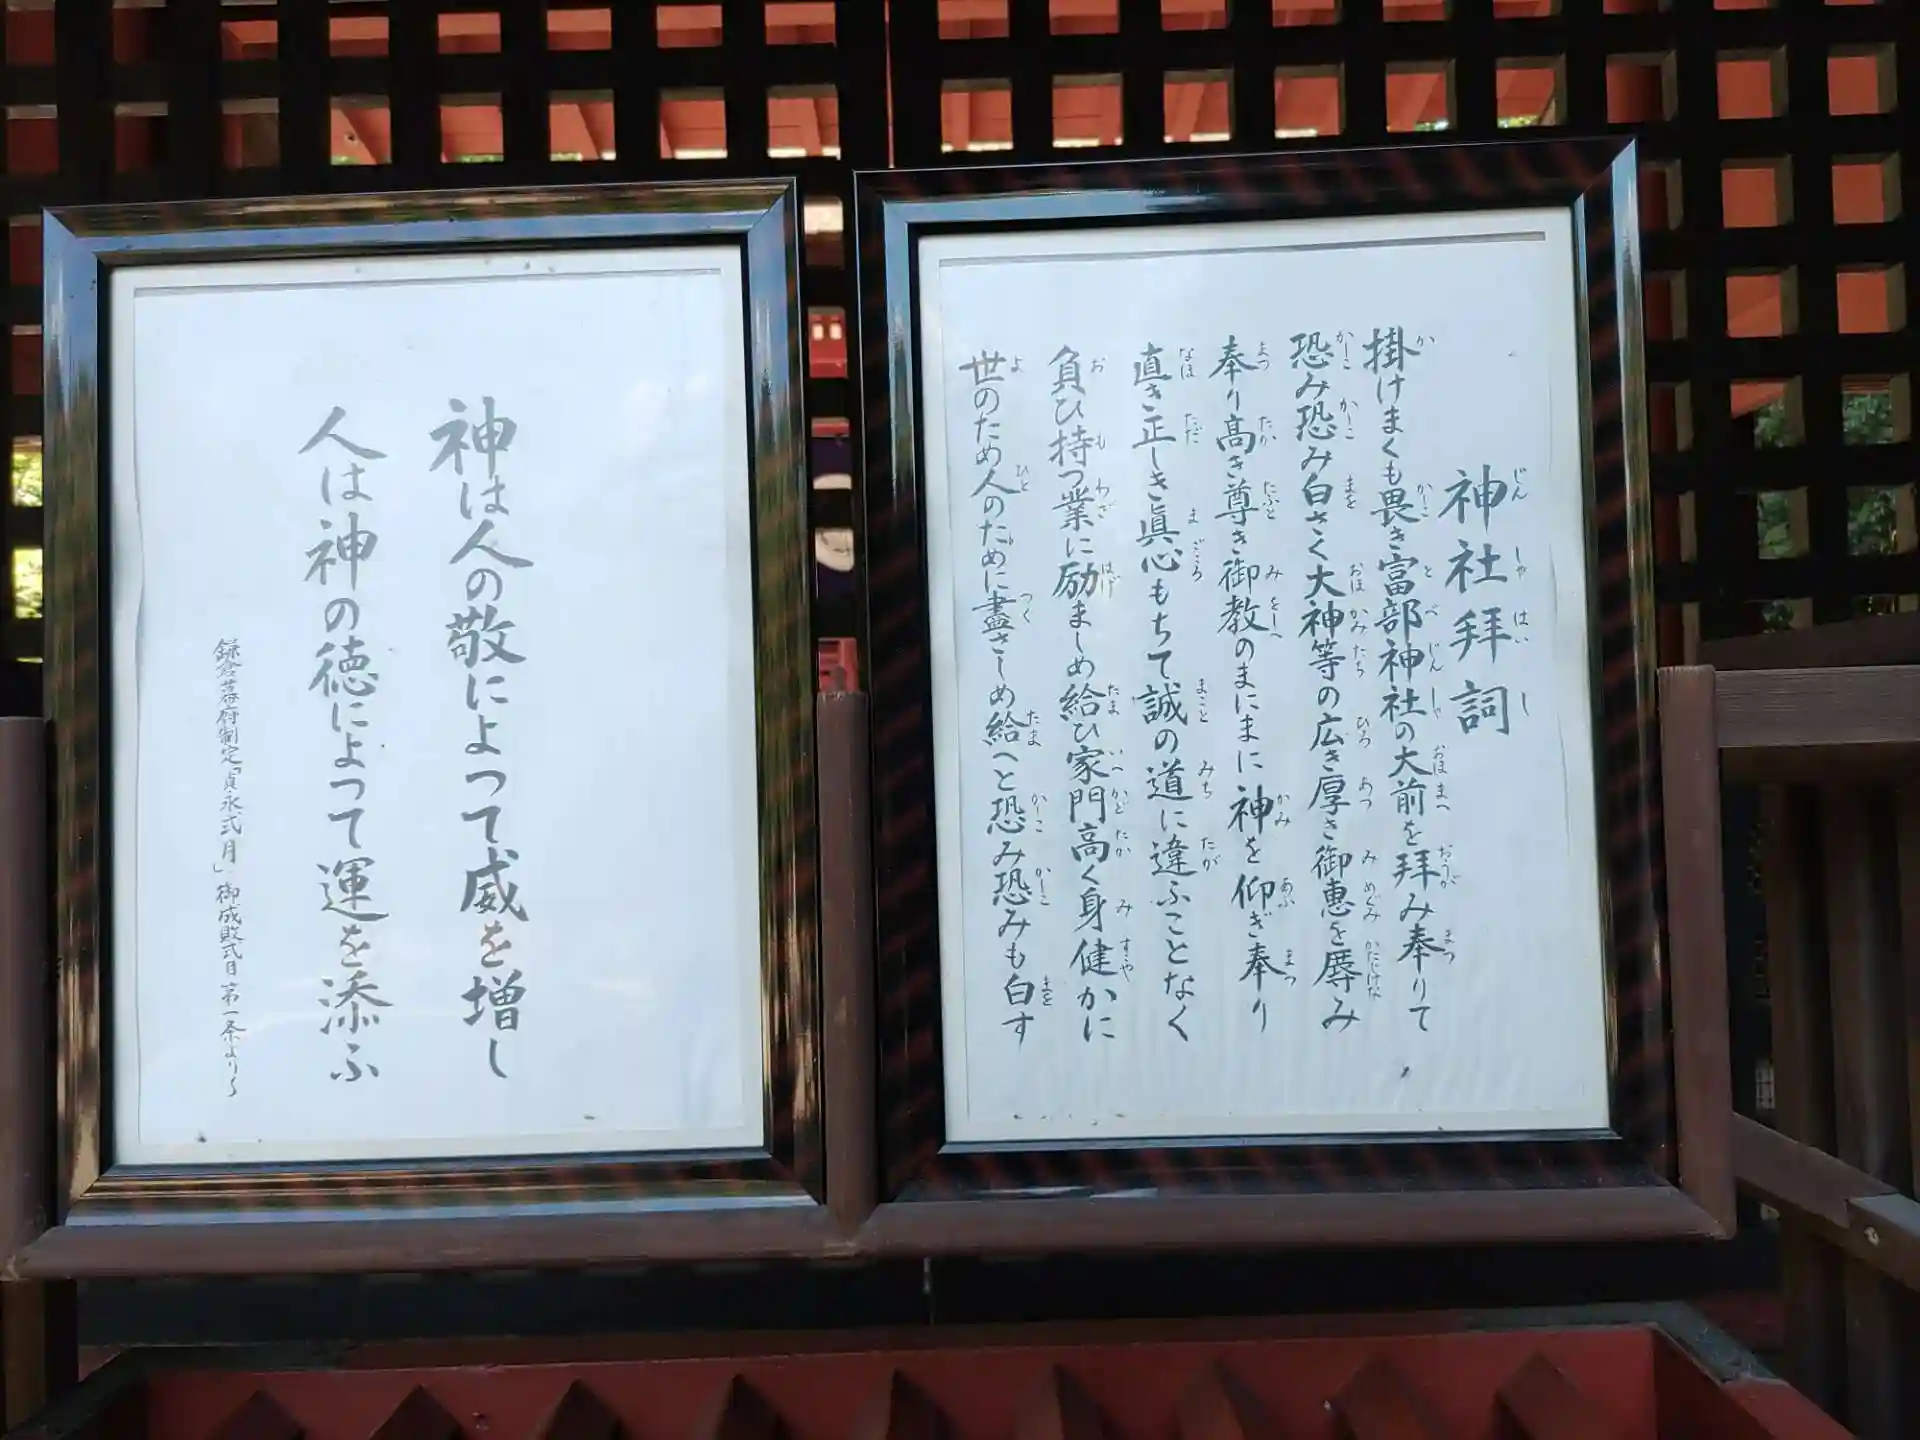 神社拝詞
掛けまくも畏き富部神社の大前を拝み奉りて
恐み恐み白さく大神等の広き厚き御恵を辱み
奉り高き尊き御教のまにまに神を仰ぎ奉り
直き正しき眞心もちて誠の道に違ふことなく
負ひ持つ業に励ましめ給ひ家門高く身健かに
世のため人のために盡さしめ給へと恐み恐みも白す
神は人の敬によつて威を増し
人は神の徳によつて運を添ふ
鎌倉幕府制定「貞永式月」御成敗式目第一条より〜